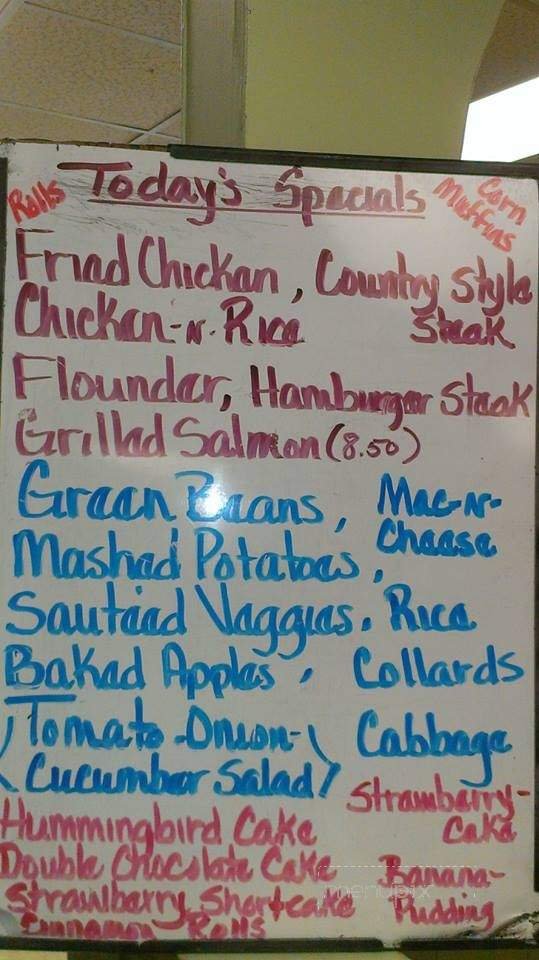 Today's Specials
Rolls
Corn
Muffins
Fried Chicken, Country Style
Steak
Chicken-n-Rice
Flounder, Hamburger Steak
Grilled Salmon (8.50)
Green Beans, Mac-n-
Cheese
Mashed Potatoes,
Sauteed Veggies, Rice
Baked Apples, Collards
(Tomato-Onion-
Cucumber Salad)
Cabbage
Hummingbird Cake
Strawberry-
Cake
Double Chocolate Cake
Strawberry Shortcake
Banana-
Pudding
Cinnamon Rolls
menupix